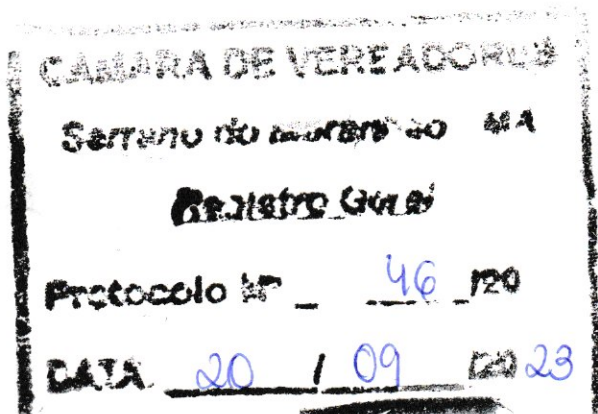 CAMARA DE VEREADORES
Serrano do Maranhão MA
Registro Geral
Protocolo Nº _ 46 /20
DATA 20 / 09 /20 23